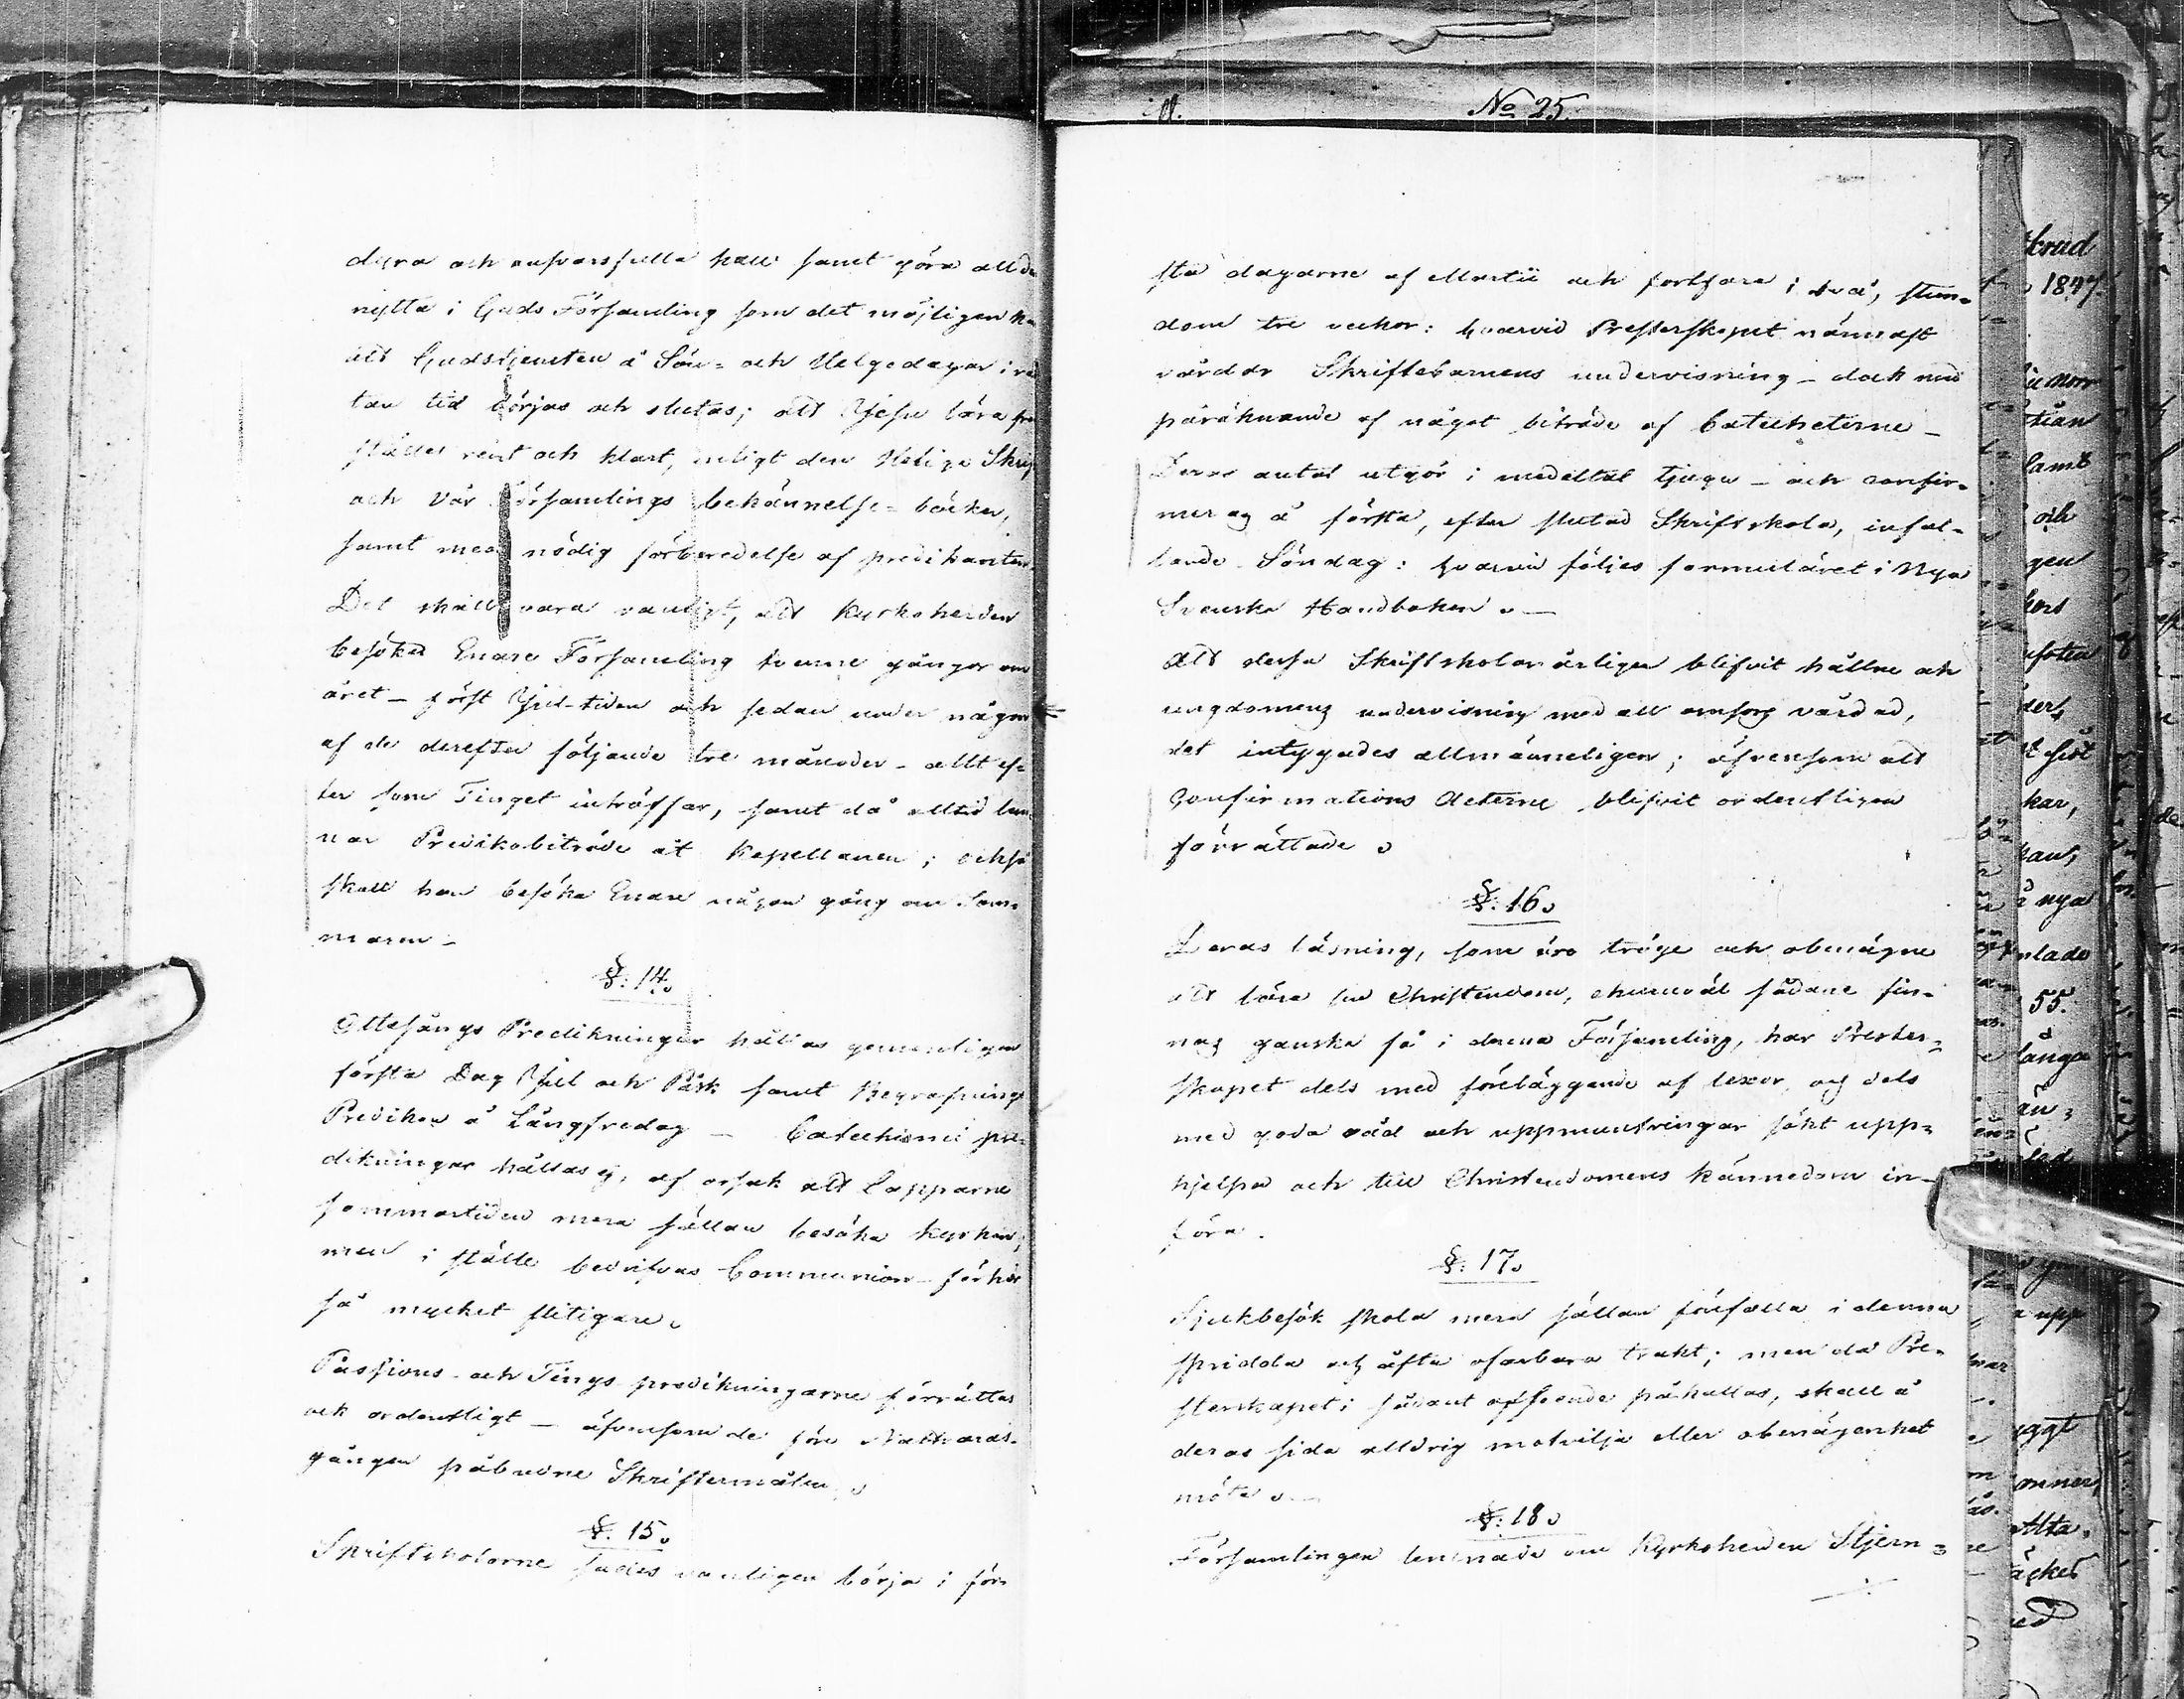 dyra och ansvarsfulla kall samt göra all de
nytta i Guds Församling som det möjligen ka
att Gudstjensten å Sön- och Helgedagar i rä
tan tid börjas och slutas; att Jesu lära fram
ställes rent och klart, enligt den Heliga Skrif
och vår Församlings bekännelse-böcker,
samt med nödig förberedelse af predikanten.
Det skall vara vanligt, att Kyrkoherden
besöker Enare Församling tvenne gånger om
året - först Jul-tiden och sedan under någon
af de derefter följande tre månader - allt ef-
ter som Tinget inträffar, samt då alltid lem
nar Predikobiträde åt Kapellanen; också
skall han besöka Enare någon gång om Som-
maren -
§: 14.
Ottesångs Predikningar hållas gemenligen
första Dag Jul och Påsk samt Begrafnings
Predikan å Långfredag - Catechismi pre-
dikningar hållas ej, af orsak att Lapparne
sommartiden mera sällan besöka kyrkan,
men i ställe bedrifvas Communion-förhör
så mycket flitigare.
Passions- och Tings-predikningarne förrättas
ock ordentligt - äfvensom de före Nattvards-
gången påbudne Skriftermålen.
§: 15.
Skriftskolorne sades vanligen börja i för-
No 25.
sta dagarne af Martii och fortfara i två, stun-
dom tre veckor: hvarvid Presterskapet närmast
vårdar Skriftebarnens undervisning - dock med
påräknande af något biträde af Catecheterne -
Deras antal utgör i medeltal tjugu - och confir-
meras å första, efter slutad Skriftskola, infal-
lande Söndag: hvarvid följes formuläret i Nya
Svenska Handboken. -
Att dessa Skriftskolor årligen blifvit hållne och
ungdomens undervisning med all omsorg vårdad,
det intygades allmänneligen; äfvensom att
Confirmations Acterne blifvit ordentligen
förrättade.
§: 16.
Deras läsning, som äro tröge och obenägne
att lära sin Christendom, ehuruväl sådane fin-
nas ganska få i denna Församling, har Prester-
skapet dels med föreläggande af lexor, och dels
med goda råd och uppmuntringar sökt upp-
hjelpa och till Christendomens kännedom in-
föra.
§: 17.
Sjukbesök skola mera sällan förefalla i denna
spridda och ofta ofarbara trakt; men då Pre-
sterskapet i sådant afseende påkallas, skall å
deras sida alldrig motvilja eller obenägenhet
möta. -
§: 18.
Församlingen lemnade om Kyrkoherden Stjern-
1847.